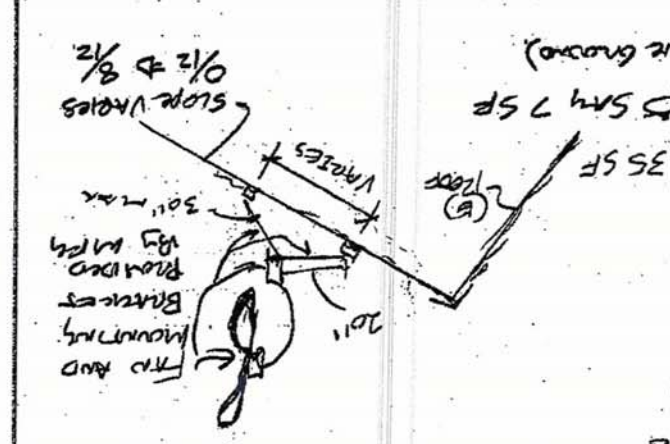 FAN AND
MOUNTING
BRACKETS
PROVIDED
BY MFG
20"
30" MAX
(E) ROOF
VARIES
SLOPE VARIES
0/12 ⇒ 8/12
35 SF
SAY 7 SF
GROUND).